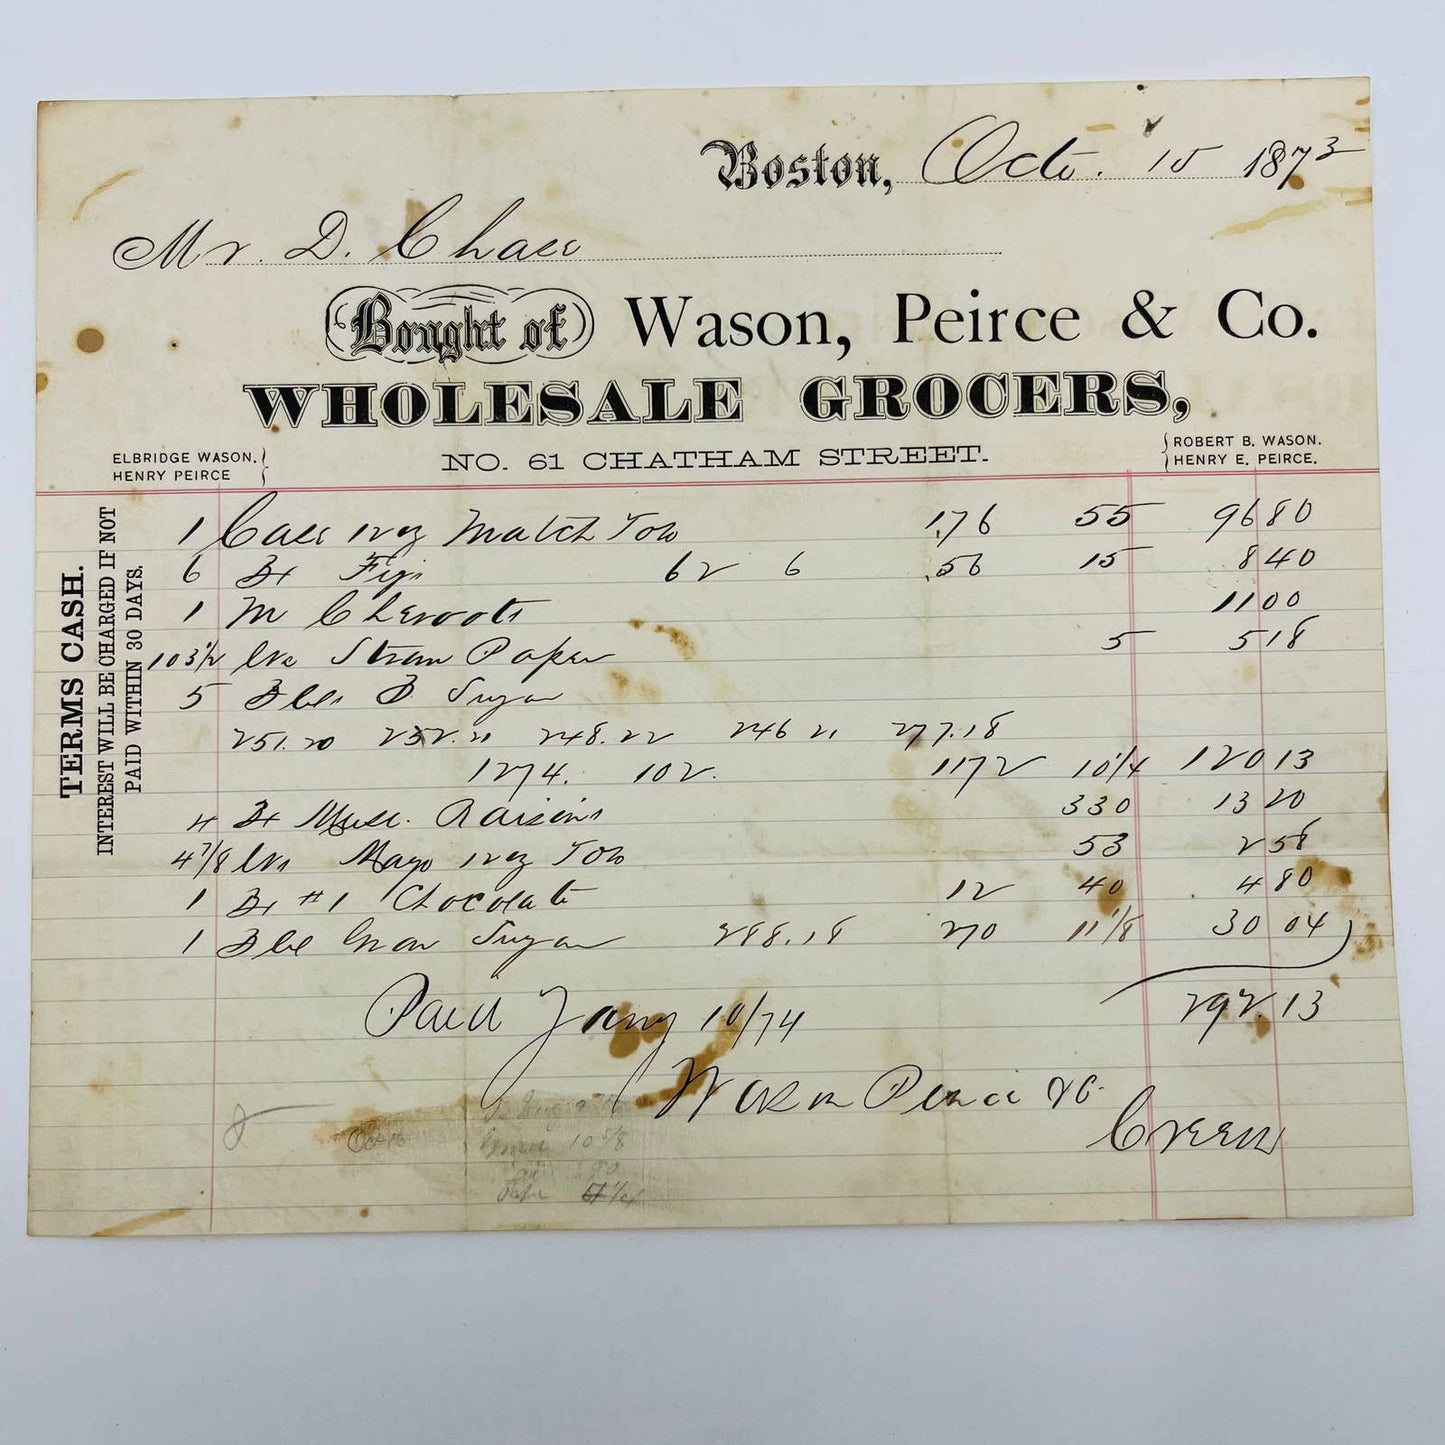 Boston, Octo. 15 1873
Mr. D. Chase
Bought of Wason, Peirce & Co.
WHOLESALE GROCERS,
NO. 61 CHATHAM STREET.
ELBRIDGE WASON.
HENRY PEIRCE
ROBERT B. WASON.
HENRY E. PEIRCE.
TERMS CASH.
INTEREST WILL BE CHARGED IF NOT
PAID WITHIN 30 DAYS.
1 Case 12 oz Match Tob 176 55 96 80
6 Bx Figs 62 6 .56 15 8 40
1 M Cheroots 11 00
103 1/2 lbs Straw Paper 5 5 18
5 Bbls B Sugar
251.20 252.21 248.22 246 21 277.18
1274. 102. 1172 10 1/4 120 13
4 Bx Musc. Raisins 330 13 20
4 7/8 lbs Mayo 12 oz Tob 53 2 58
1 Bx #1 Chocolate 12 40 4 80
1 Bbl Gran Sugar 288.18 270 11 1/8 30 04
292.13
Paid Jany 10/74
Wason Peirce & Co.
Green
Oct 16
10 5/8
90